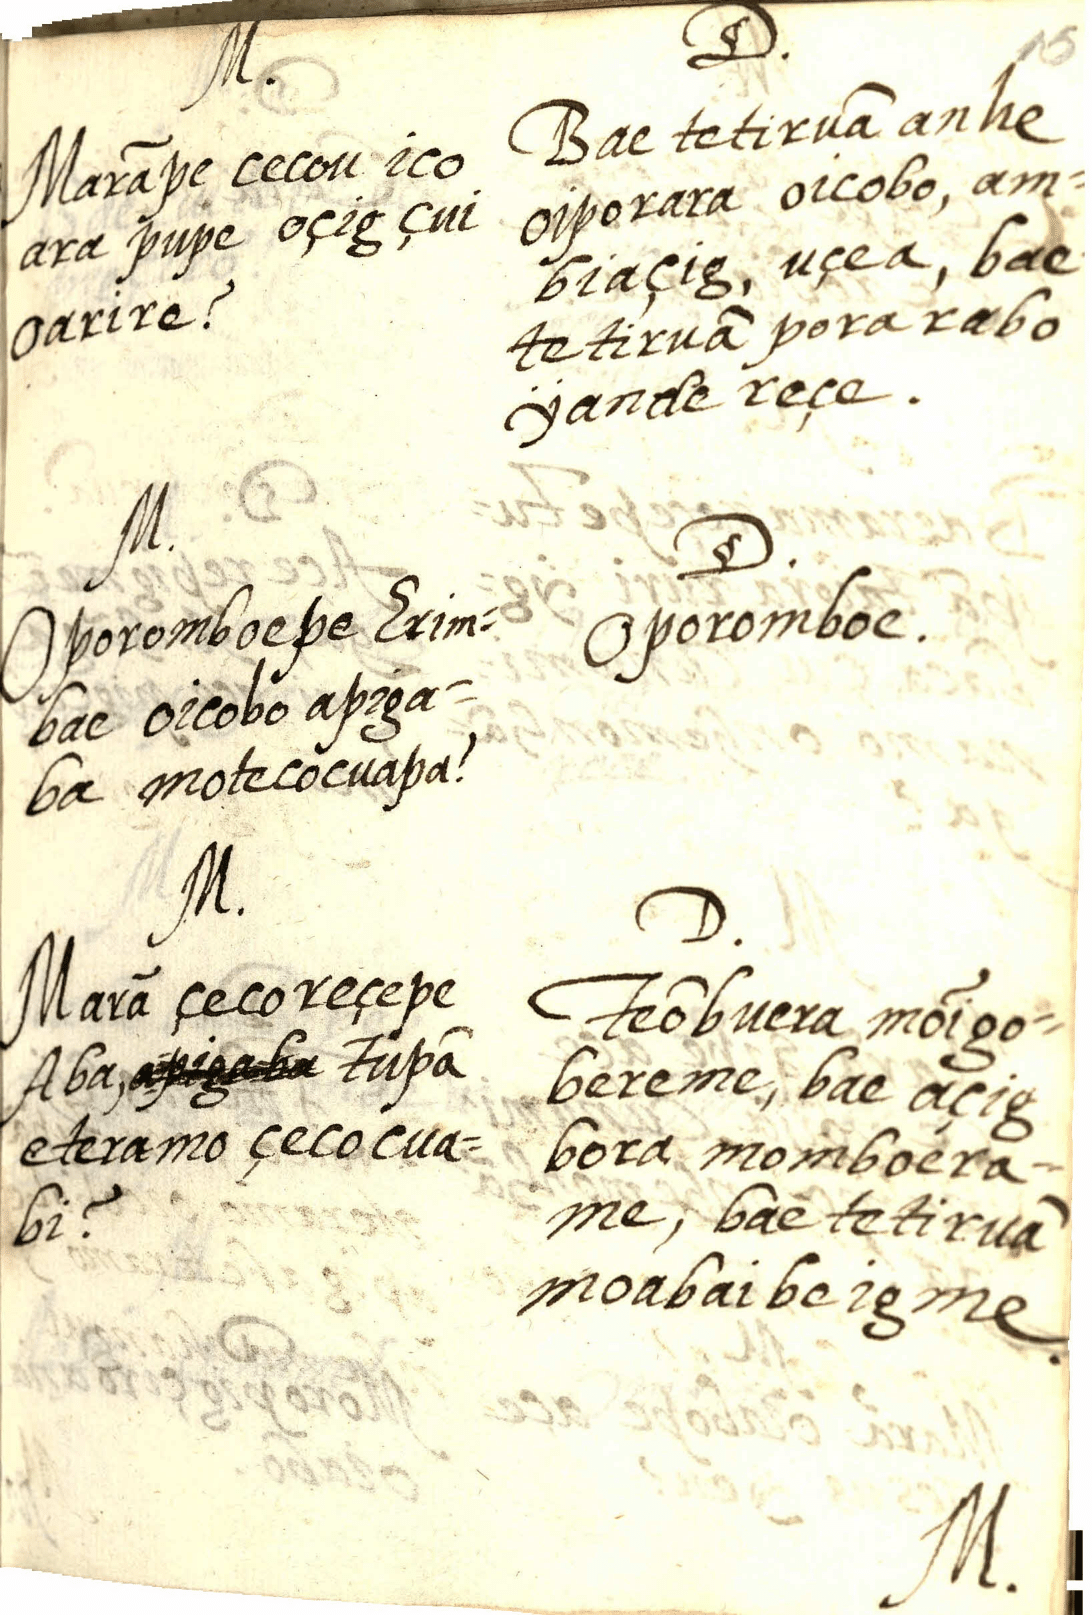 15
M.
Marãpe cecou ico
ara pupe oçig çui
oarire?
D.
Bae tetiruã anhe
oiporara oicobo, am=
biaçig, uçea, bae
tetiruã porarabo
ÿande reçe.
M.
Oporomboepe Erim=
bae oicobo apiga=
ba motecõcuapa?
D.
Oporomboe.
M.
Marã çecoreçepe
Aba, apigaba Tupã
eteramo çecocua=
bi?
D.
Teõbuera mõigo=
bereme, bae açig
bora momboera=
me, bae tetiruã
moabaibeigme.
M.